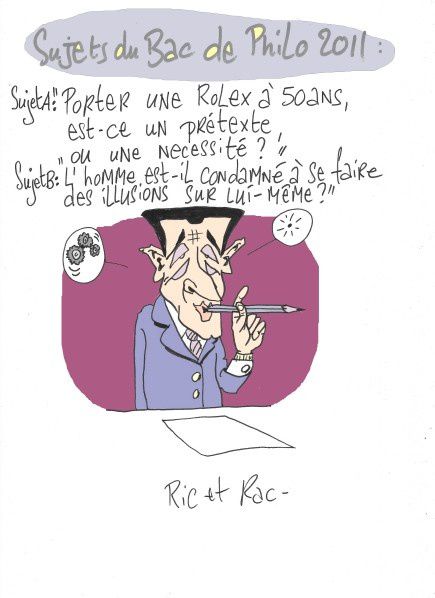 Sujets du Bac de Philo 2011 :
Sujet A: "Porter une Rolex à 50 ans,
est-ce un prétexte,
ou une necessité ? "
Sujet B: "L'homme est-il condamné à se faire
des illusions sur lui-même ? "
Ric et Rac -